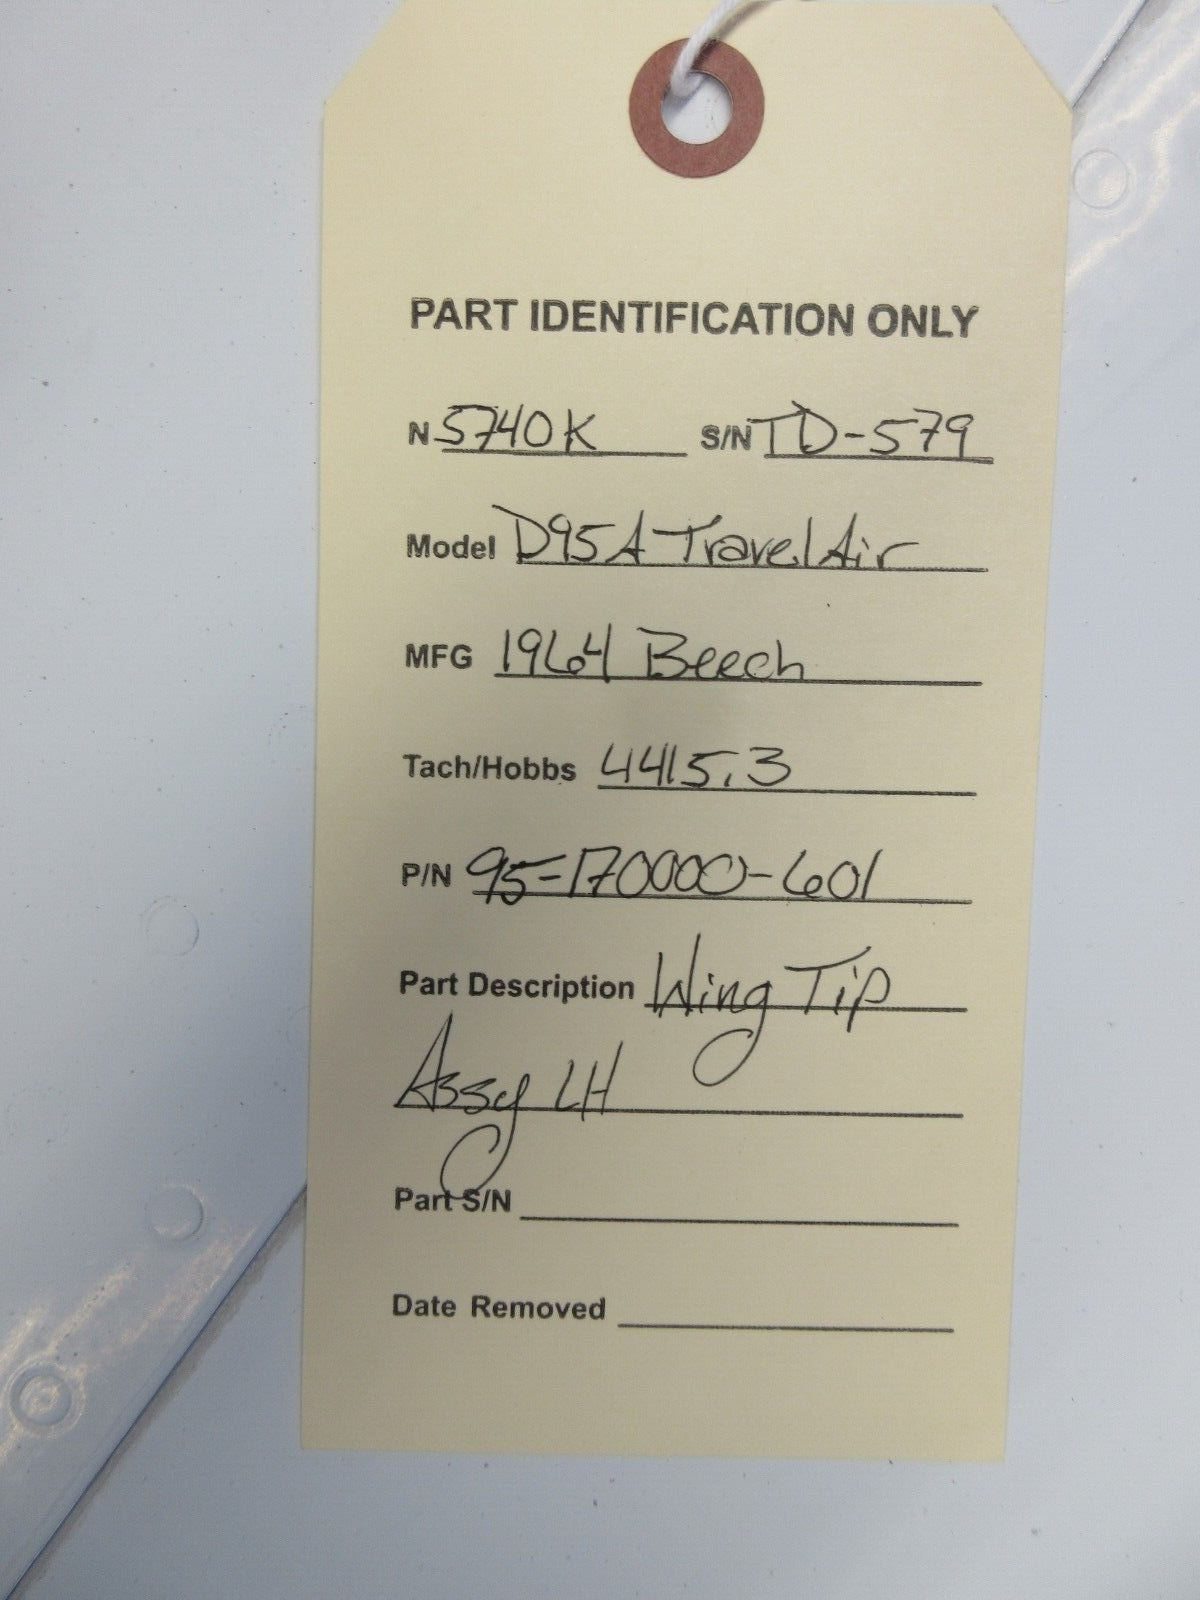 PART IDENTIFICATION ONLY
N 5740K S/N TD-579
Model D95A Travel Air
MFG 1964 Beech
Tach/Hobbs 4415.3
P/N 95-170000-601
Part Description Wing Tip
Assy LH
Part S/N
Date Removed